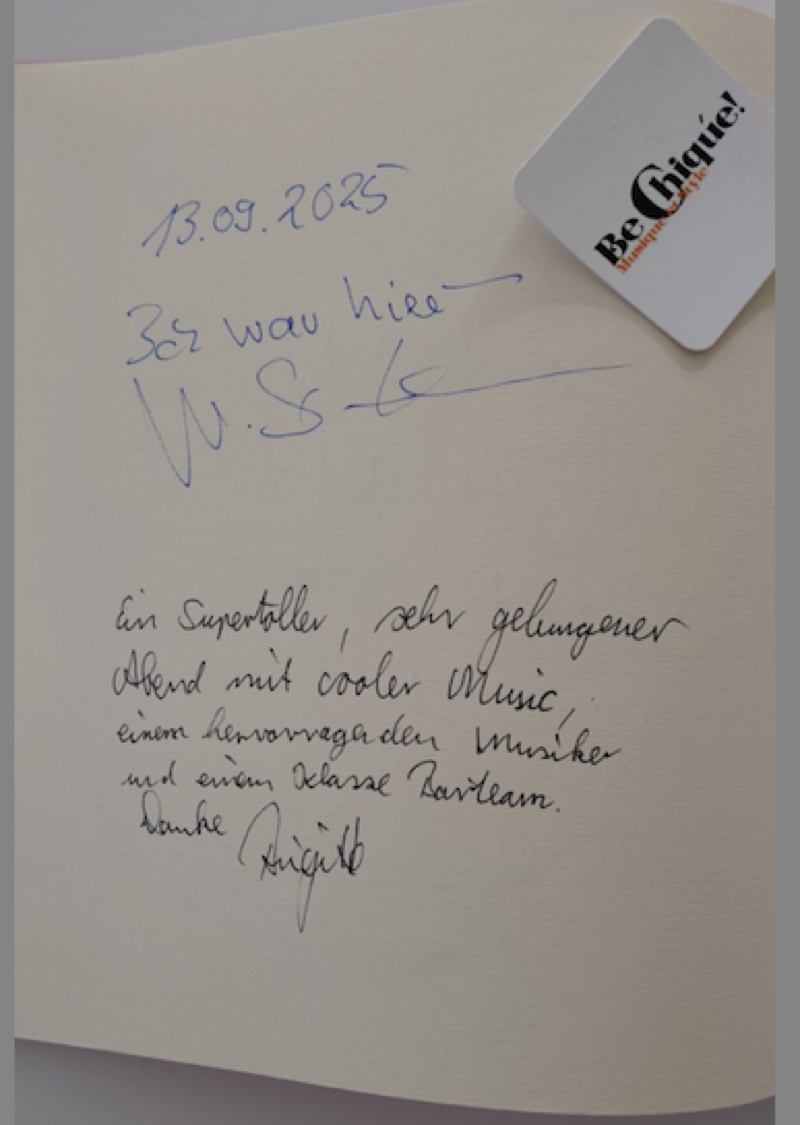 13.09.2025
Ich war hier
W. S
Ein supertoller, sehr gelungener
Abend mit cooler Music,
einem hervorragenden Musiker
und einem klasse Barteam.
Danke Birgitt
Be Chiqúe!
Musique & Style